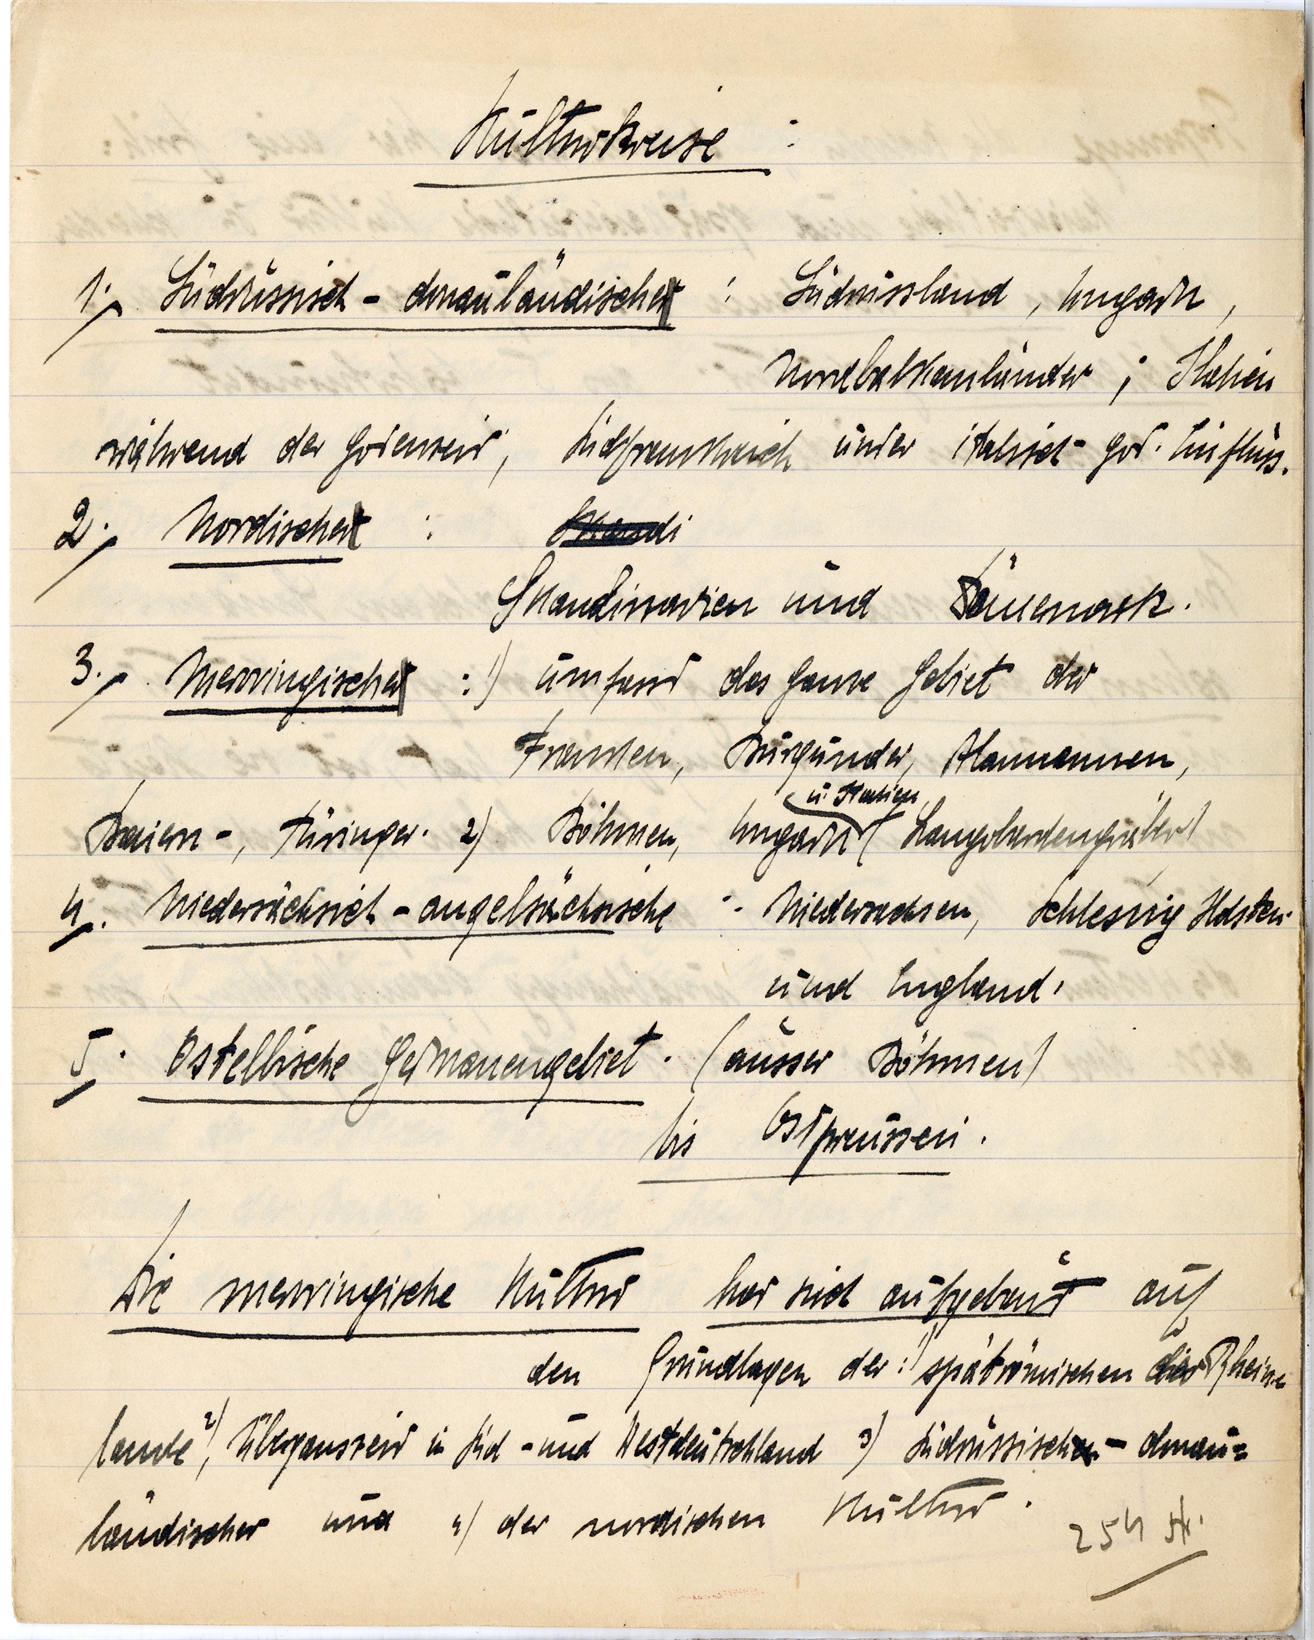 Kulturkreise :
1. Südrussisch - donauländischer : Südrussland , Ungarn ,
Nordbalkanländer ; Italien
während der Gotenzeit, Südfrankreich unter italisch-got. Einfluss.
2. Nordischer : Skandi
Skandinavien und Dänemark.
3. Merwingischer : 1) umfasst das ganze Gebiet der
Franken, Burgunder, Alamannen,
u. Italien
Baiern-, Türinger. 2) Böhmen, Ungarn (Langobardengräber)
4. Niedersächsisch - angelsächsische : Niedersachsen, Schleswig Holstein
und England.
5. Ostelbische Germanengebiet. (ausser Böhmen)
bis Ostpreussen.
Die merwingische Kultur hat sich aufgebaut auf
den Grundlagen der : 1) spätrömischen der Rhein=
lande 2), Übergangszeit in Süd - und Westdeutschland 3) Südrussisch - donau=
ländischer und 4) der nordischen Kultur.
254 St.